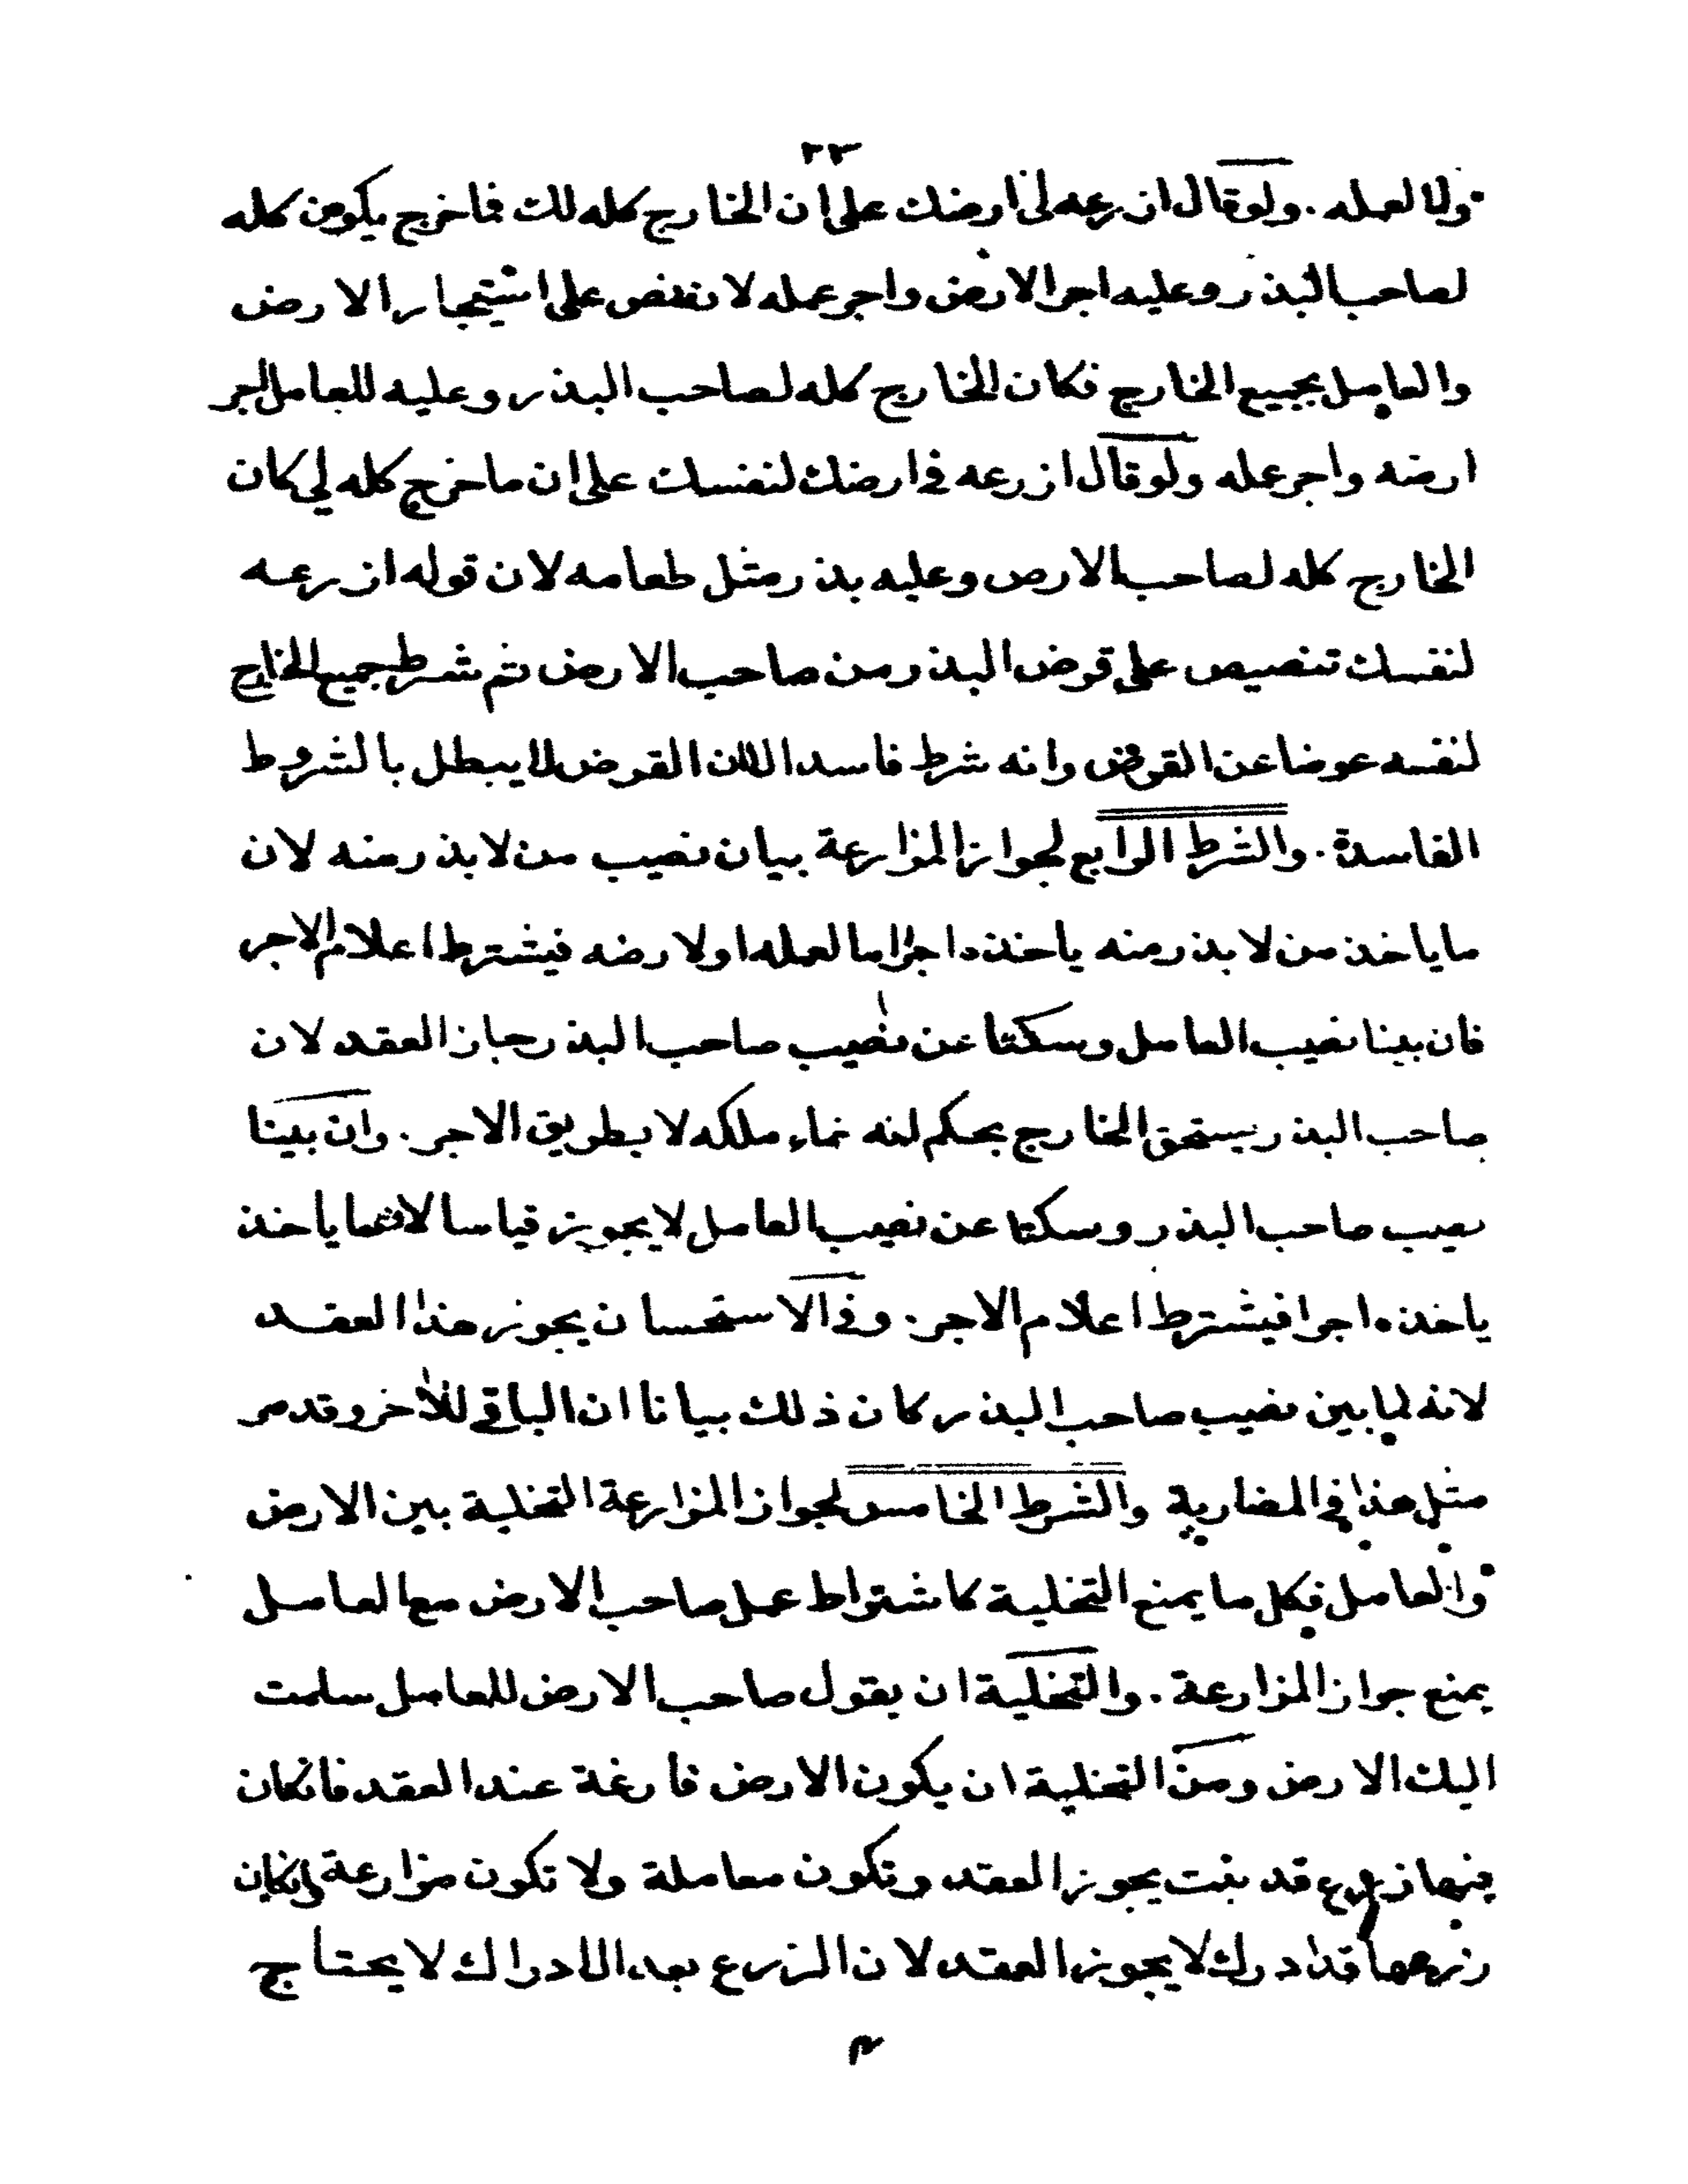 ٣٣
ولا لعمله . ولو قال ازرعه لى ارضك على ان الخارج كله لك فاخرج يكون كله
لصاحب البذر وعليه اجر الارض واجر عمله لانه نص على استيجار الارض
والعامل بجميع الخارج فكان الخارج كله لصاحب البذر وعليه للعامل اجر
ارضه واجر عمله ولو قال ازرعه فى ارضك لنفسك على ان ما خرج كله لي كان
الخارج كله لصاحب الارض وعليه بذر مثل طعامه لان قوله ازرعه
لنفسك تنصيص على قرض البذر من صاحب الارض ثم شرط جميع الخارج
لنفسه عوضا عن القرض وانه شرط فاسد الا ان القرض لا يبطل بالشروط
الفاسدة . والشرط الرابع لجواز المزارعة بيان نصيب من لا بذر منه لان
ما ياخذ من لا بذر منه ياخذه اجرا اما لعمله او لارضه فيشترط اعلام الاجر
فان بينا نصيب العامل وسكتا عن نصيب صاحب البذر جاز العقد لان
صاحب البذر يستحق الخارج بحكم انه نماء ملكه لا بطريق الاجر . وان بينا
نصيب صاحب البذر وسكتا عن نصيب العامل لا يجوز قياسا لان ما ياخذ
ياخذه اجرا فيشترط اعلام الاجر . وفى الاستحسان يجوز هذا العقد
لانه لما بين نصيب صاحب البذر كان ذلك بيانا ان الباقي للآخر وقد مر
مثل هذا في المضاربة والشرط الخامس لجواز المزارعة التخلية بين الارض
والعامل فكل ما يمنع التخلية كاشتراط عمل صاحب الارض مع العامل
يمنع جواز المزارعة . والتخلية ان يقول صاحب الارض للعامل سلمت
اليك الارض ومن التخلية ان يكون الارض فارغة عند العقد فانكان
فيها زرع قد نبت يجوز العقد وتكون معاملة ولا تكون مزارعة وانكان
زرعها قد ادرك لا يجوز العقد لان الزرع بعد الادراك لا يحتاج